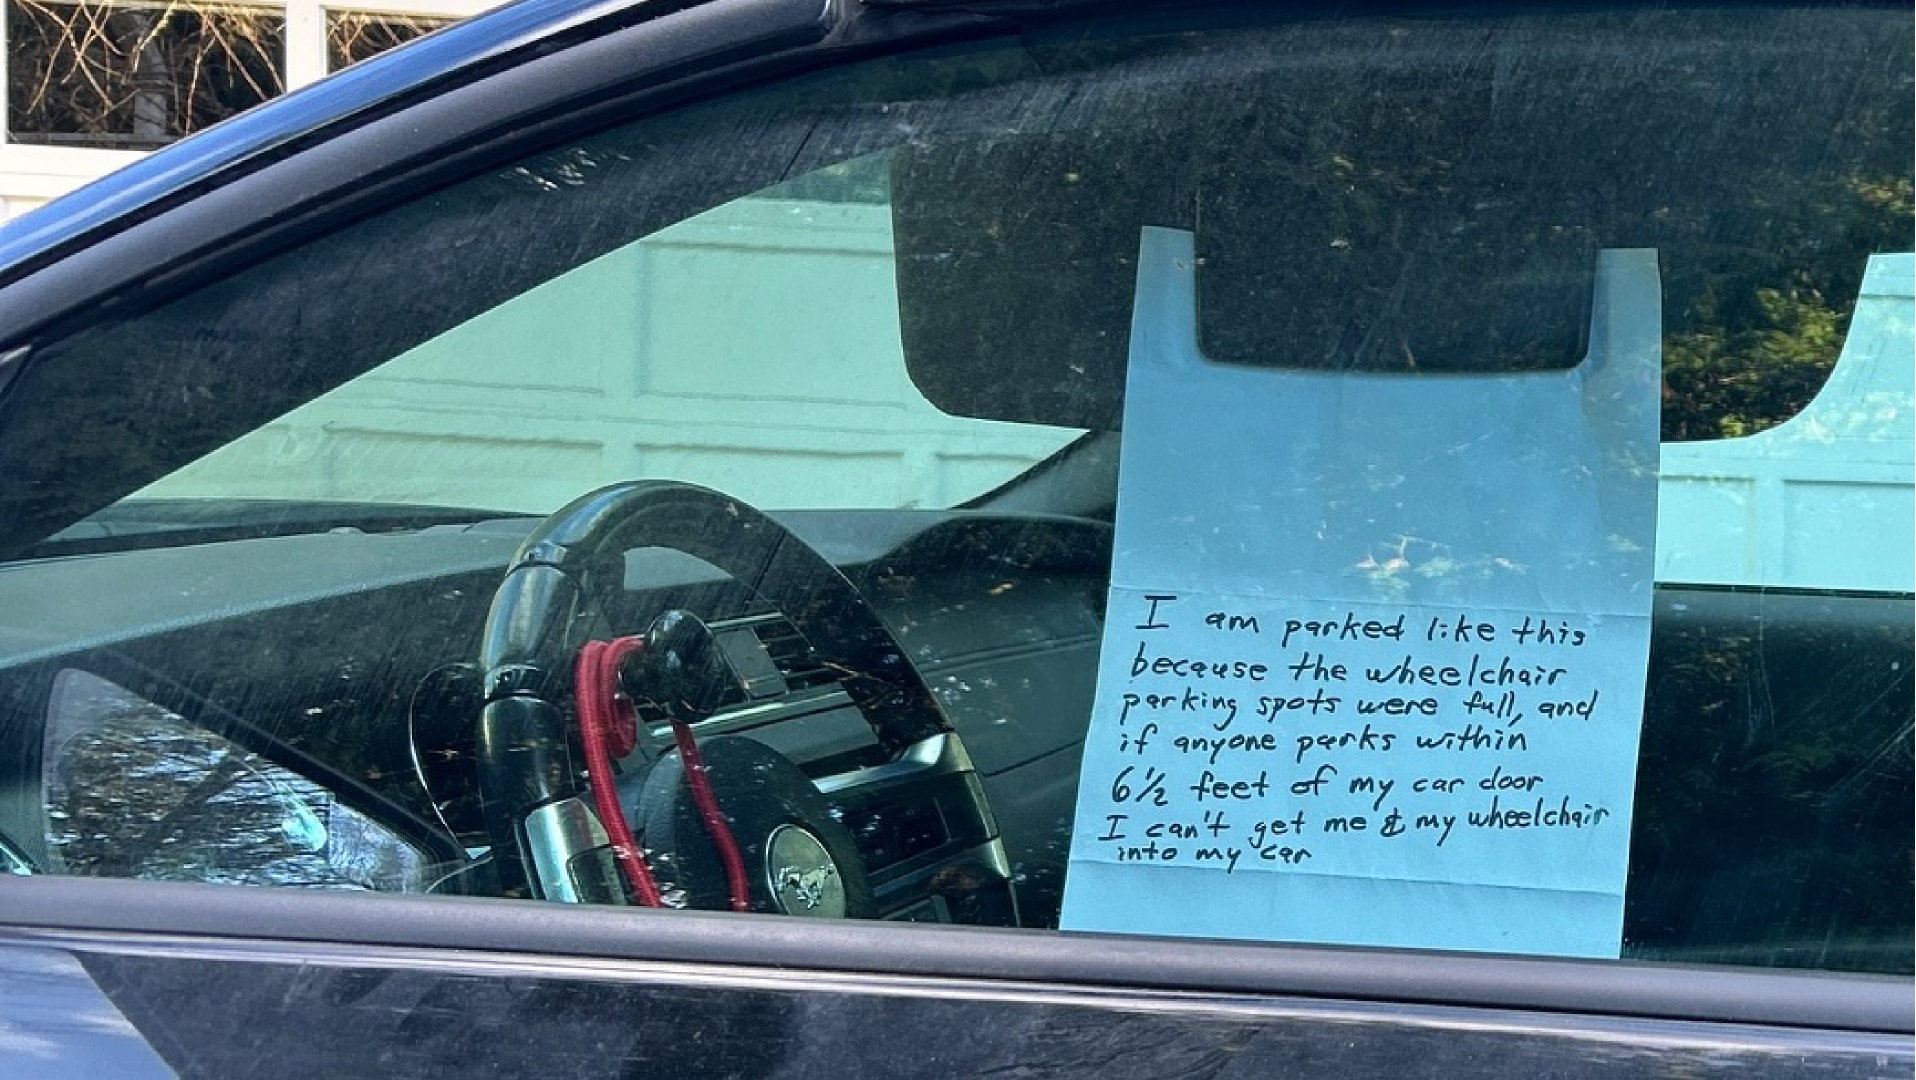 I am parked like this
because the wheelchair
parking spots were full, and
if anyone parks within
6 1/2 feet of my car door
I can't get me & my wheelchair
into my car